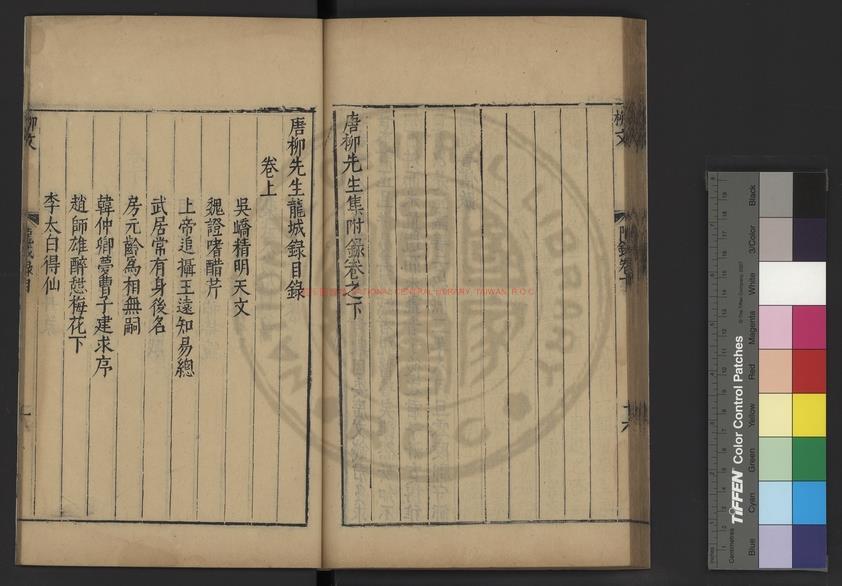 唐柳先生集附錄卷之下
唐柳先生龍城錄目錄
卷上
吳嶠精明天文
魏證嗜醋芹
上帝追攝王遠知易總
武居常有身後名
房元齡為相無嗣
韓仲卿夢曹子建求序
趙師雄醉憩梅花下
李太白得仙
柳文
柳文
NATIONAL CENTRAL LIBRARY, TAIWAN, R.O.C.
TIFFEN Color Control Patches
© The Tiffen Company, 2007
Centimetres
Inches
Blue
Cyan
Green
Yellow
Red
Magenta
White
3/Color
Black